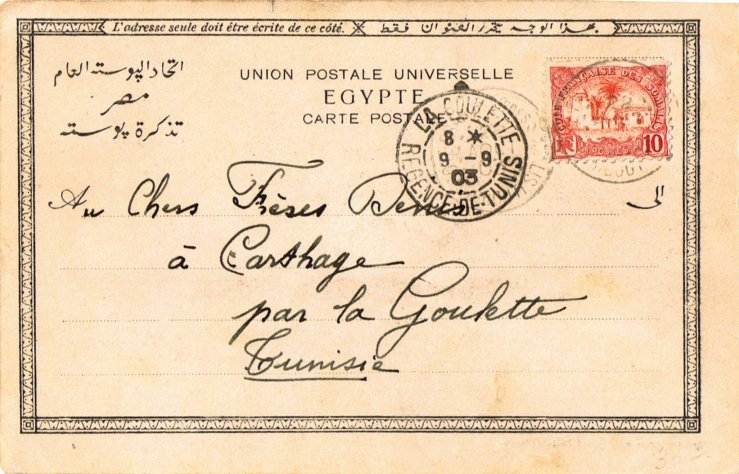 L'adresse seule doit être écrite de ce côté.
بهذا الوجه يحرر العنوان فقط
اتحاد البوستة العام
مصر
تذكرة بوستة
UNION POSTALE UNIVERSELLE
EGYPTE
CARTE POSTALE
CÔTE FRANÇAISE DES SOMALIS
POSTES
10
LA GOULETTE
8 *
9 - 9
03
REGENCE-DE-TUNIS
الى
Au Chers Frères Denis
à Carthage
par la Goulette
Tunisie